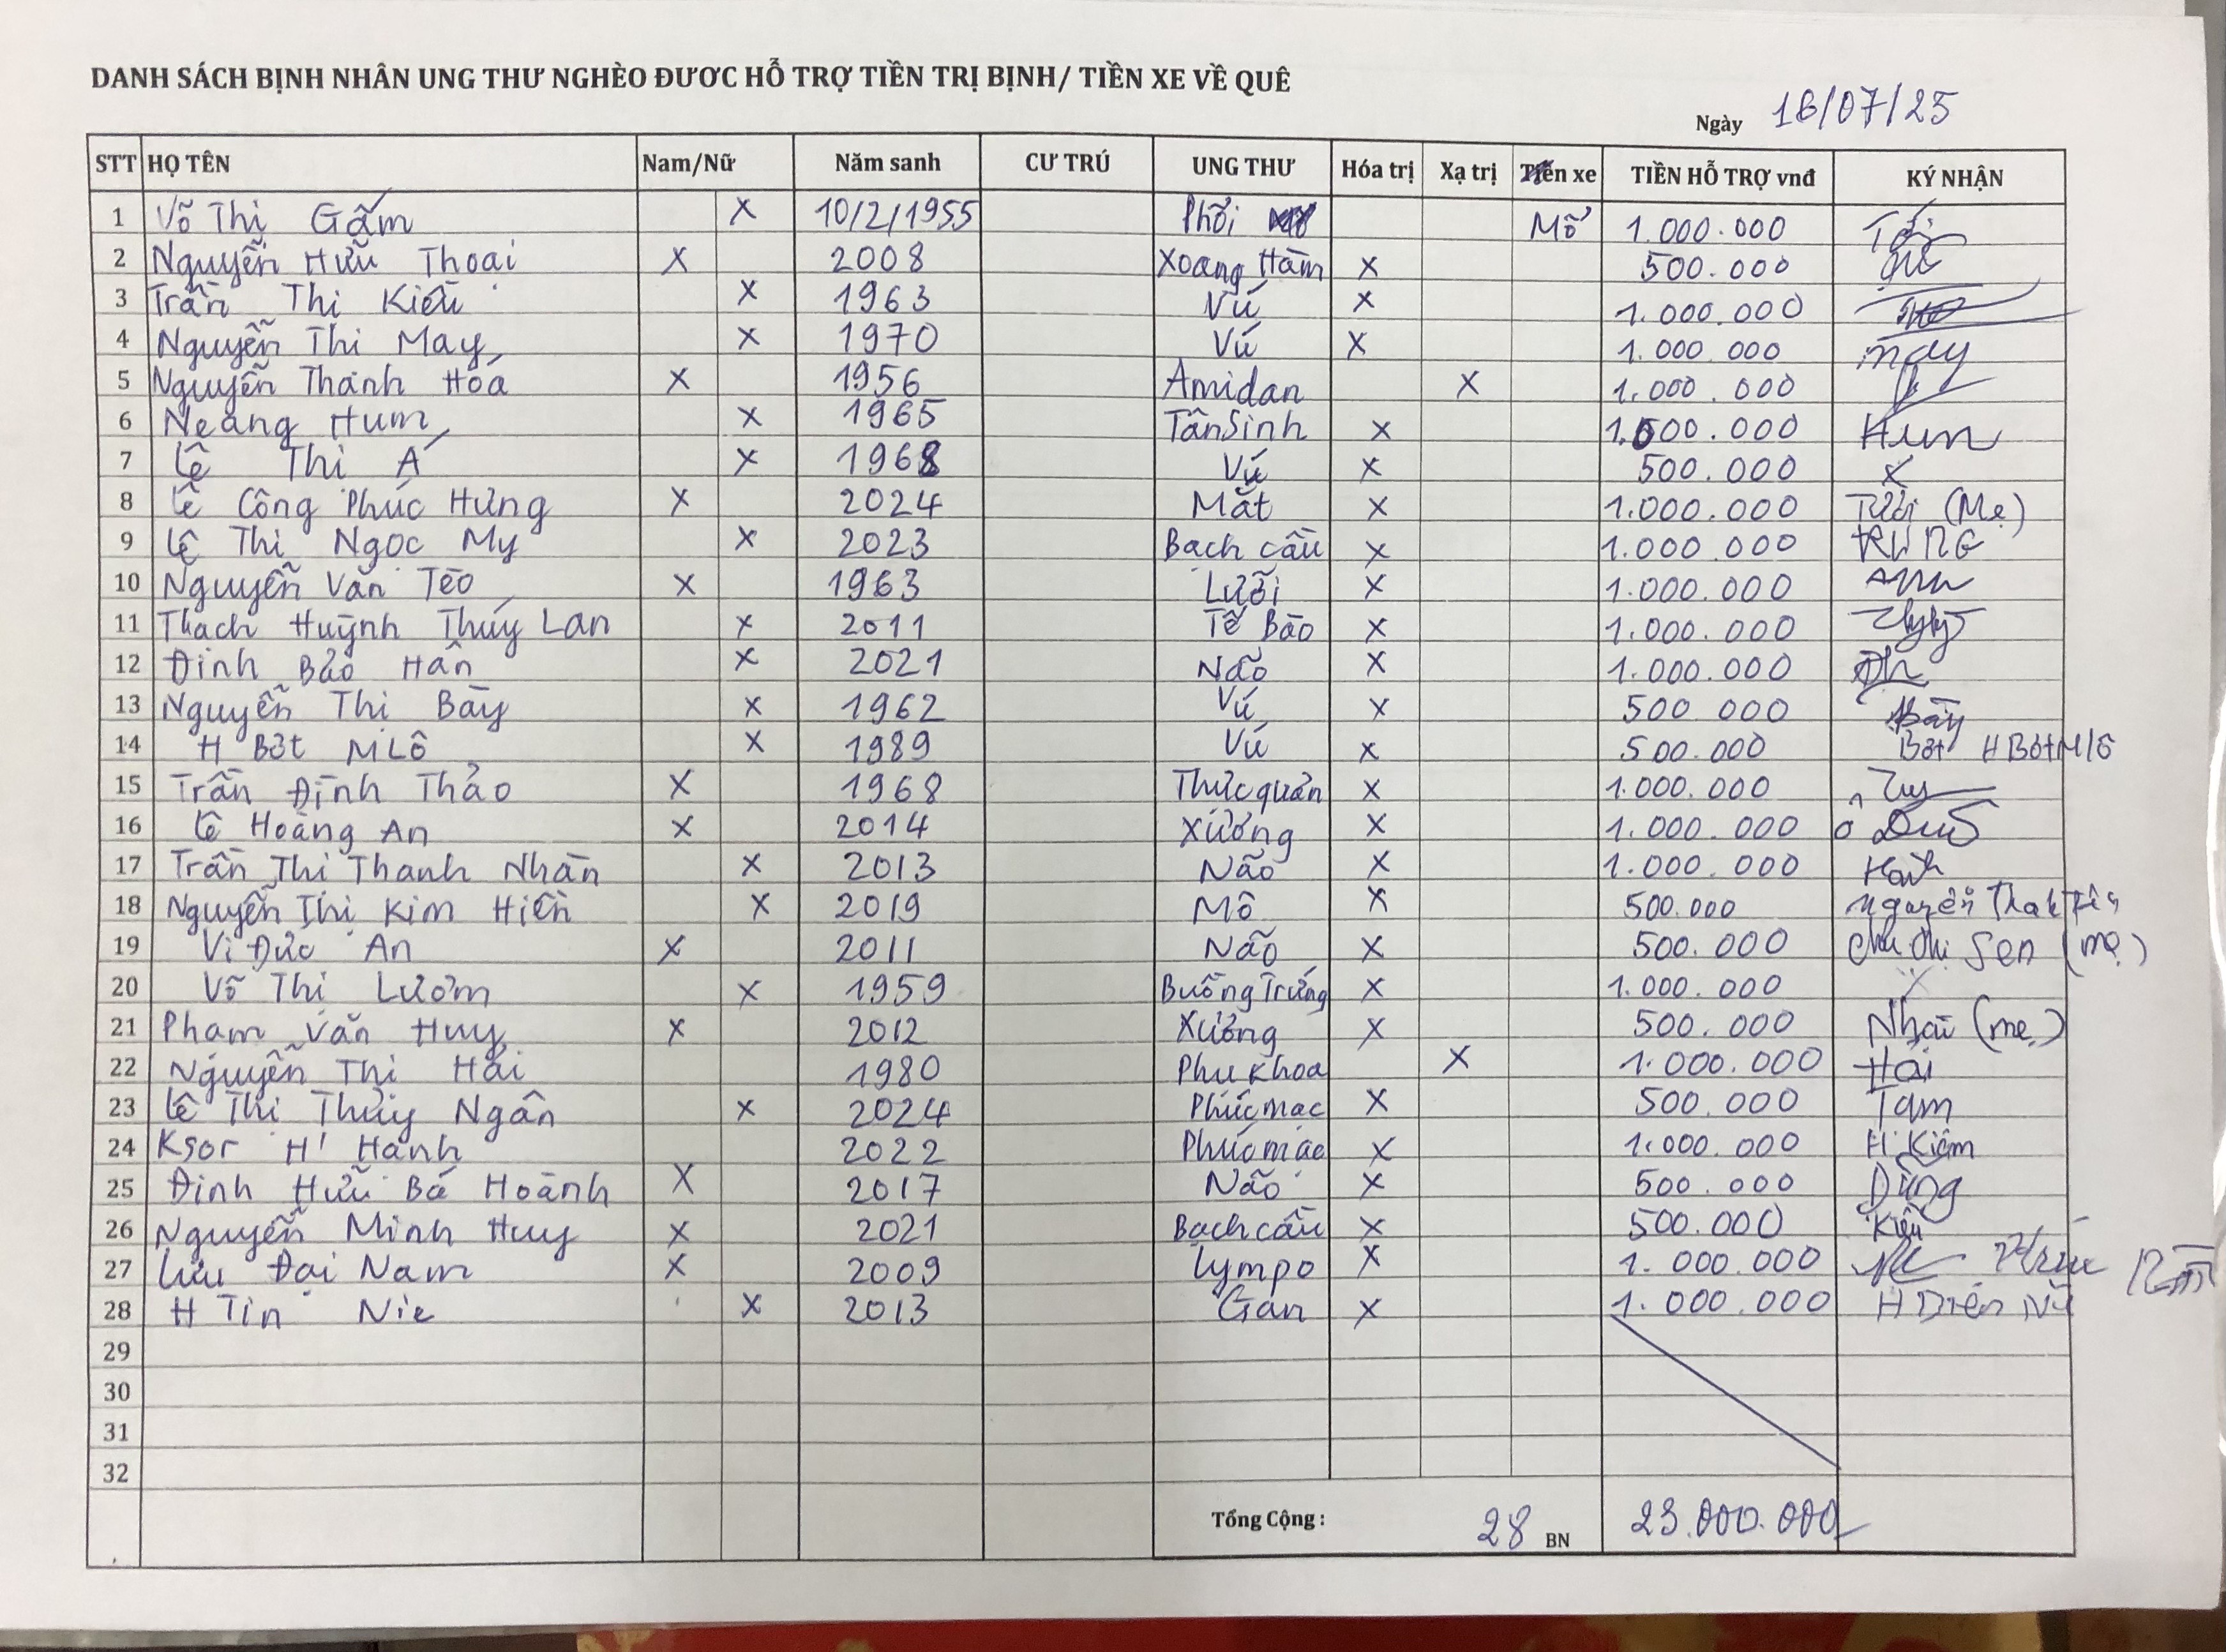 DANH SÁCH BỊNH NHÂN UNG THƯ NGHÈO ĐƯƠC HỖ TRỢ TIỀN TRỊ BỊNH/ TIỀN XE VỀ QUÊ
Ngày 16/07/25
STT HỌ TÊN Nam/Nữ Năm sanh CƯ TRÚ UNG THƯ Hóa trị Xạ trị Tiền xe TIỀN HỖ TRỢ vnđ KÝ NHẬN
1 Võ Thị Gấm X 10/2/1955 Phổi Mổ 1.000.000
2 Nguyễn Hữu Thoại X 2008 Xoang Hàm X 500.000
3 Trần Thị Kiều X 1963 Vú X 1.000.000
4 Nguyễn Thị May X 1970 Vú X 1.000.000 may
5 Nguyễn Thanh Hoá X 1956 Amidan X 1.000.000
6 Neang Hum X 1965 Tân Sinh X 000.000 Hum
7 Lê Thị Á X 1968 Vú X 500.000 X
8 Lê Công Phúc Hưng X 2024 Mắt X 1.000.000 (Mẹ)
9 Lê Thị Ngọc My X 2023 Bạch cầu X 1.000.000
10 Nguyễn Văn Tèo X 1963 Lưỡi X 1.000.000
11 Thạch Huỳnh Thúy Lan X 2011 Tế Bào X 1.000.000
12 Đinh Bảo Hân X 2021 Não X 1.000.000
13 Nguyễn Thị Bảy X 1962 Vú X 500.000 Bảy
14 H Bơt MLô X 1989 Vú X 500.000 Bơt H Bơt Mlô
15 Trần Đình Thảo X 1968 Thực quản X 1.000.000
16 Lê Hoàng An X 2014 Xương X 1.000.000
17 Trần Thị Thanh Nhàn X 2013 Não X 1.000.000
18 Nguyễn Thị Kim Hiền X 2019 Mô X 500.000 Nguyễn
19 Vi Đức An X 2011 Não X 500.000 Sen (mẹ)
20 Võ Thị Lượm X 1959 Buồng Trứng X 1.000.000 X
21 Phạm Văn Huy X 2012 Xương X 500.000 (mẹ)
22 Nguyễn Thị Hải 1980 Phụ khoa X 1.000.000 Hải
23 Lê Thị Thùy Ngân X 2024 Phúc mạc X 500.000 Tam
24 Ksor H' Hạnh 2022 Phúc mạc X 1.000.000 H Kiêm
25 Đinh Hữu Bá Hoành X 2017 Não X 500.000 Dũng
26 Nguyễn Minh Huy X 2021 Bạch cầu X 500.000 Kiều
27 Lưu Đại Nam X 2009 Lympo X 1.000.000
28 H Tin Nie X 2013 Gan X 1.000.000
29
30
31
32
Tổng Cộng : 28 BN 23.000.000